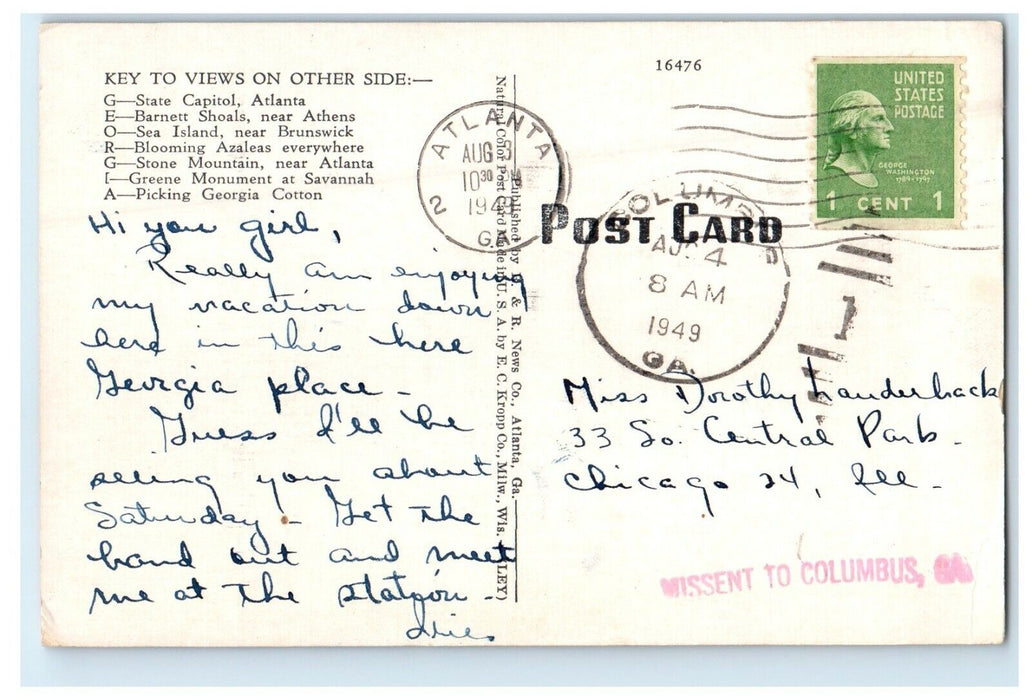 KEY TO VIEWS ON OTHER SIDE:—
G—State Capitol, Atlanta
E—Barnett Shoals, near Athens
O—Sea Island, near Brunswick
R—Blooming Azaleas everywhere
G—Stone Mountain, near Atlanta
I—Greene Monument at Savannah
A—Picking Georgia Cotton
Hi you girl,
Really am enjoying
my vacation down
here in this here
Georgia place -
Guess I'll be
seeing you about
Saturday - Get the
band out and meet
me at the station -
Published by & R. News Co., Atlanta, Ga.
Natural Color Post Card Made in U. S. A. by E. C. Kropp Co., Milw., Wis.
16476
ATLANTA
AUG 3
10 30
1949
2
GA.
POST CARD
AUG 4
8 AM
1949
GA.
UNITED
STATES
POSTAGE
GEORGE
WASHINGTON
1789-1797
1 CENT 1
1
Miss Dorothy Lauderback
33 So. Central Park -
Chicago 24, Ill -
MISSENT TO COLUMBUS, GA